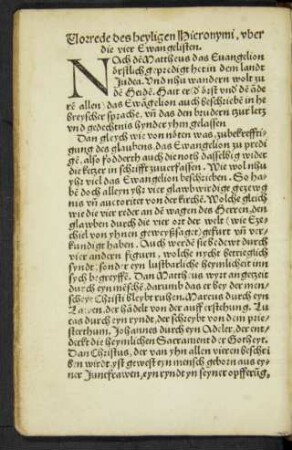 Vorrede des heyligen Hieronymi, vber
die vier Ewangelisten.
NAch dē Mattheus das Euangelion
örstlich gepredigt het in dem landt
Judea. Vnd nhu wandern wolt zu
dē Heidē. Hait er dörst vnd dē ādē
rē allen) das Ewāgelion auch beschriebē in he
breyscher sprache, vñ das den brudern zur letz
vnd gedechtnis hynder yhm gelassen
Dan gleych wie von nöten was, zubekreffti
gen des glaubens, das Ewangelion zu predi
gē, also fodderth auch die noth dasselbig wider
die ketzer in schrifft zuuerfassen. Wie wol nhu
yhr viel das Ewangelion beschrieben. So ha
bē doch alleyn yhr vier glawbwirdige gezewg
nis vñ auctoritet von der kirchē. Wölche gleych
wie die vier reder an dē wagen des Herren, den
glawben durch die vier ort der welt (wie Eze
chiel von yhnen geweyßsaget) gefurt vñ ver
kundigt haben. Auch werdē sie bedewt durch
vier andern figuern, wölche nycht betrieglich
synd t, sondˀr eyn lustbarliche heymlicheit inn
sych begreyffē. Dan Mattheus wyrt angetzeit
durch eyn mēschē, darumb das er bey der men-
scheyt Christi bleybt ruhen. Marcus durch eyn
Lawen, der hādelt von der aufferstehung. Lu
cas durch eyn ryndt, der schreybt von dem prie-
sterthum. Johannes durch eyn Adeler, der ent-
deckt die heymlichen Sacrament der Gotheyt.
Dan Christus, der van yhn allen vieren beschri
ben wirdt, yst gewest eyn mensch geborn aus ey
ner Junckfrawen, eyn ryndt yn seyner opfferūg,